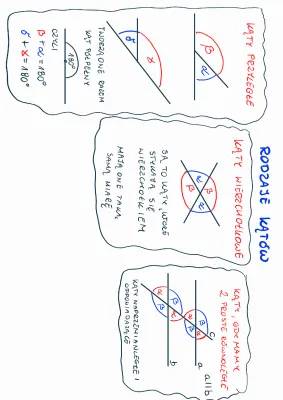 RODZAJE KĄTÓW
KĄTY PRZYLEGŁE
β
α
δ
γ
TWORZĄ ONE RAZEM
KĄT PÓŁPEŁNY
180°
CZYLI
β + α = 180°
δ + γ = 180°
KĄTY WIERZCHOŁKOWE
α
β
β
α
SĄ TO KĄTY, KTÓRE
STYKAJĄ SIĘ
WIERZCHOŁKIEM
MAJĄ ONE TAKĄ
SAMĄ MIARĘ
KĄTY, GDY MAMY
2 PROSTE RÓWNOLEGŁE
a || b
a
b
KĄTY NAPRZEMIANLEGŁE I
ODPOWIADAJĄCE